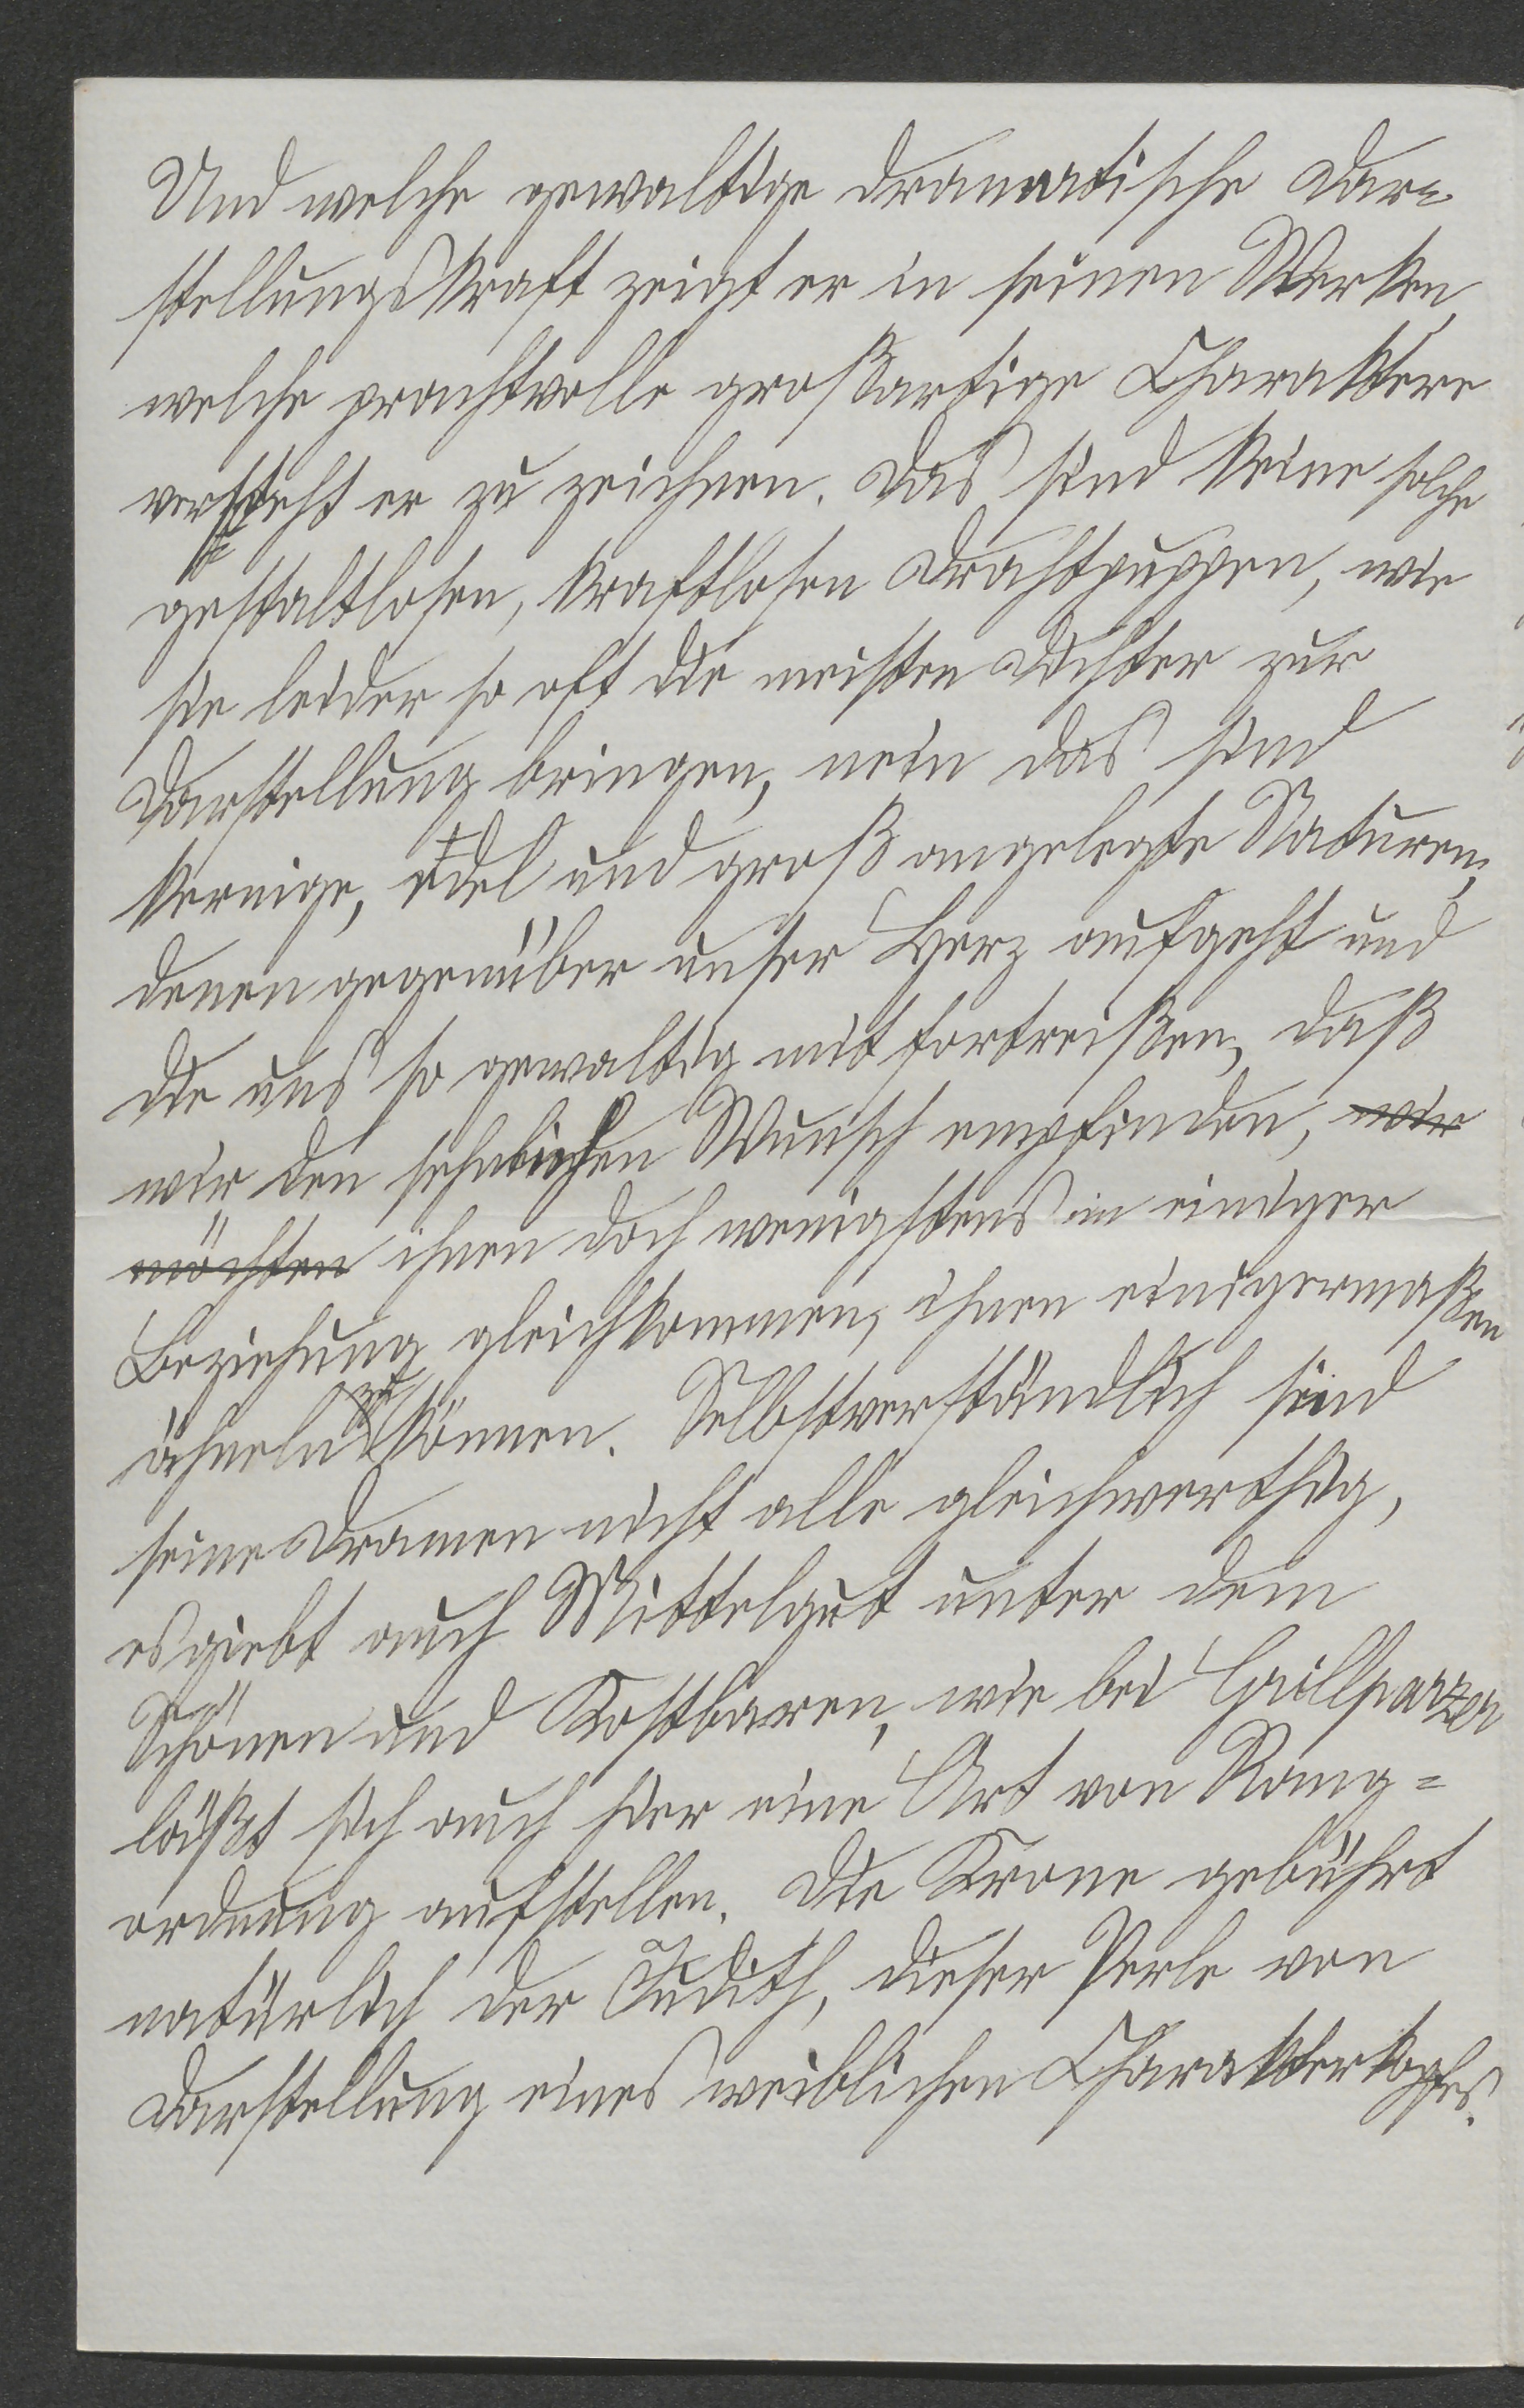 Und welche gewaltige dramatische Dar-
stellungskraft zeigt er in seinen Werken,
welche prachtvolle großartige Charaktere
versteht er zu zeichnen. Das sind keine solche
gestaltlosen, kraftlosen Drahtpuppen, wie
sie leider so oft die meisten Dichter zur
Darstellung bringen, nein das sind
kernige, edel und groß angelegte Naturen,
denen gegenüber unser Herz aufgeht und
die uns so gewaltig mit fortreißen, daß
wir den sehnlichen Wunsch empfinden, wir
möchten ihnen doch wenigstens in einiger
Beziehung gleichkommen, ihnen einigermaßen
ähneln zu können. Selbstverständlich sind
seine Dramen nicht alle gleichwerthig,
es giebt auch Mittelgut unter dem
Schönen und Kostbaren, wie bei Grillparzer
läßt sich auch hier eine Art von Rang=
ordnung aufstellen. Die Krone gebührt
natürlich der Judith, dieser Perle von
Darstellung eines weiblichen Charakterkopfes.